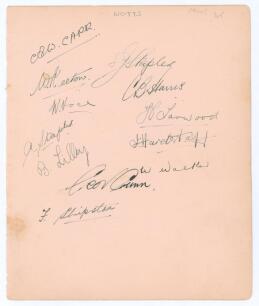 NOTTS
C.B.W. CARR.
S.J. Staples
W. Keeton.
C.B. Harris
W. Voce
H. Larwood
A. Staples
J. Hardstaff
B. Lilley
W Walker
Geo V Gunn.
F. Shipston